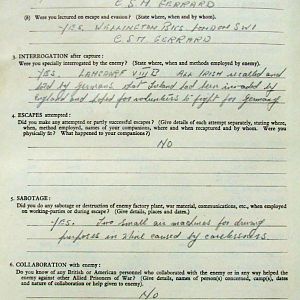 C.S.M. GERRARD
(b) Were you lectured on escape and evasion? (State where, when and by whom).
YES. WELLINGTON BKS. LONDON SW1
C.S.M. GERRARD
3. INTERROGATION after capture:
Were you specially interrogated by the enemy? (State where, when and methods employed by enemy).
YES. LAMSDORF VIII B ALL IRISH called and
told by Germans that Ireland had been invaded by
England and asked for volunteers to fight for Germany
4. ESCAPES attempted:
Did you make any attempted or partly successful escapes? (Give details of each attempt separately, stating where,
when, method employed, names of your companions, where and when recaptured and by whom. Were you
physically fit? What happened to your companions?)
NO
5. SABOTAGE:
Did you do any sabotage or destruction of enemy factory plant, war material, communications, etc., when employed
on working-parties or during escape? (Give details, places and dates.)
YES. Two small air machines for driving
purposes in mine caused by carelessness.
6. COLLABORATION with enemy:
Do you know of any British or American personnel who collaborated with the enemy or in any way helped the
enemy against other Allied Prisoners of War? (Give details, names of person(s) concerned, camp(s), dates
and nature of collaboration or help given to enemy).
No